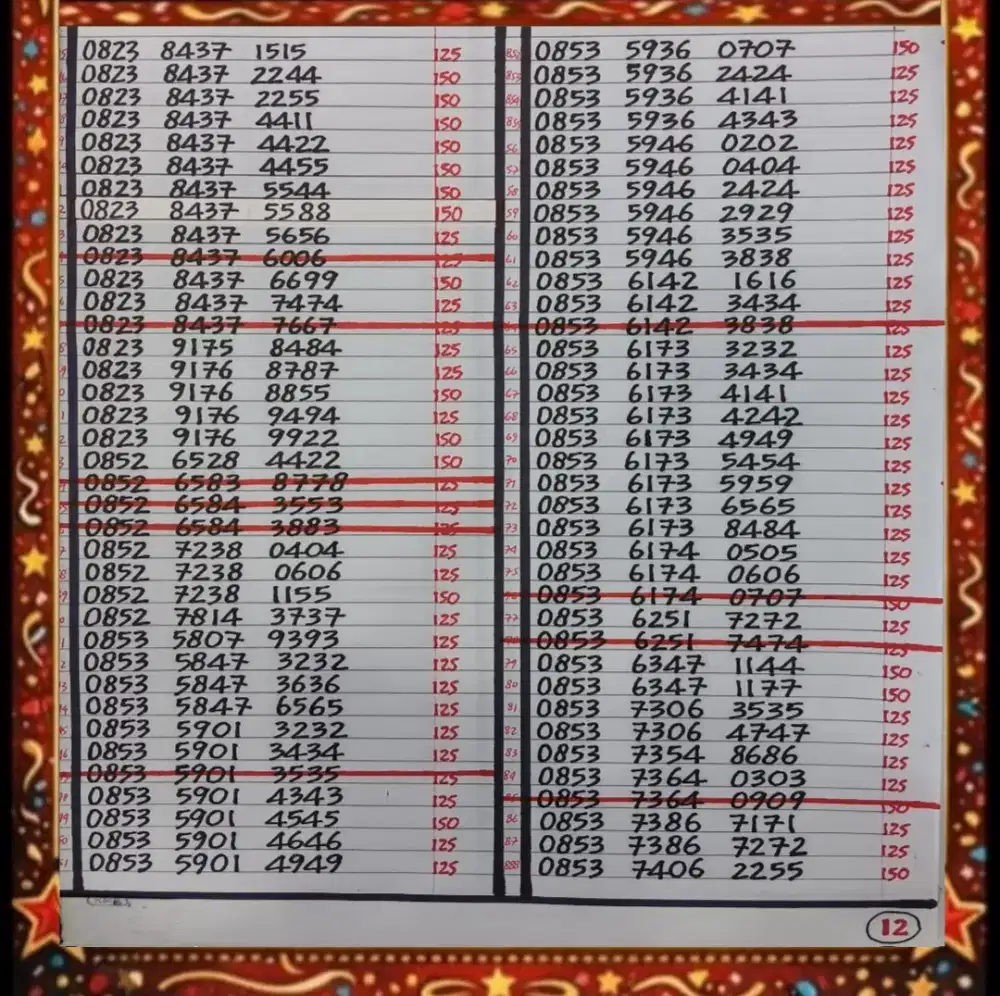 0823 8437 1515 125
0823 8437 2244 150
0823 8437 2255 150
0823 8437 4411 150
0823 8437 4422 150
0823 8437 4455 150
0823 8437 5544 150
0823 8437 5588 150
0823 8437 5656 125
0823 8437 6006 125
0823 8437 6699 150
0823 8437 7474 125
0823 8437 7667 125
0823 9175 8484 125
0823 9176 8787 125
0823 9176 8855 150
0823 9176 9494 125
0823 9176 9922 150
0852 6528 4422 150
0852 6583 8778 125
0852 6584 3553 125
0852 6584 3883 125
0852 7238 0404 125
0852 7238 0606 125
0852 7238 1155 150
0852 7814 3737 125
0853 5807 9393 125
0853 5847 3232 125
0853 5847 3636 125
0853 5847 6565 125
0853 5901 3232 125
0853 5901 3434 125
0853 5901 3535 125
0853 5901 4343 125
0853 5901 4545 150
0853 5901 4646 125
0853 5901 4949 125
852 0853 5936 0707 150
853 0853 5936 2424 125
854 0853 5936 4141 125
855 0853 5936 4343 125
56 0853 5946 0202 125
57 0853 5946 0404 125
58 0853 5946 2424 125
59 0853 5946 2929 125
60 0853 5946 3535 125
61 0853 5946 3838 125
62 0853 6142 1616 125
63 0853 6142 3434 125
64 0853 6142 3838 125
65 0853 6173 3232 125
66 0853 6173 3434 125
67 0853 6173 4141 125
68 0853 6173 4242 125
69 0853 6173 4949 125
70 0853 6173 5454 125
71 0853 6173 5959 125
72 0853 6173 6565 125
73 0853 6173 8484 125
74 0853 6174 0505 125
75 0853 6174 0606 125
76 0853 6174 0707 150
77 0853 6251 7272 125
78 0853 6251 7474 125
79 0853 6347 1144 150
80 0853 6347 1177 150
81 0853 7306 3535 125
82 0853 7306 4747 125
83 0853 7354 8686 125
84 0853 7364 0303 125
85 0853 7364 0909 150
86 0853 7386 7171 125
87 0853 7386 7272 125
888 0853 7406 2255 150
12